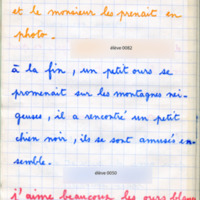 et le monsieur les prenait en
photo.
élève 0082
à la fin, un petit ours se
promenait sur les montagnes nei-
geuses, il a rencontré un petit
chien noir, ils se sont amusés en-
semble.
élève 0050
j'aime beaucoup les ours blancs